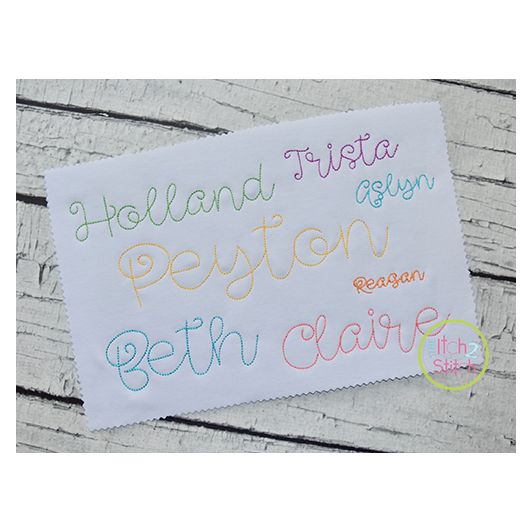 Holland
Trista
Aslyn
Peyton
Reagan
Beth
Claire
Itch2
Stitch